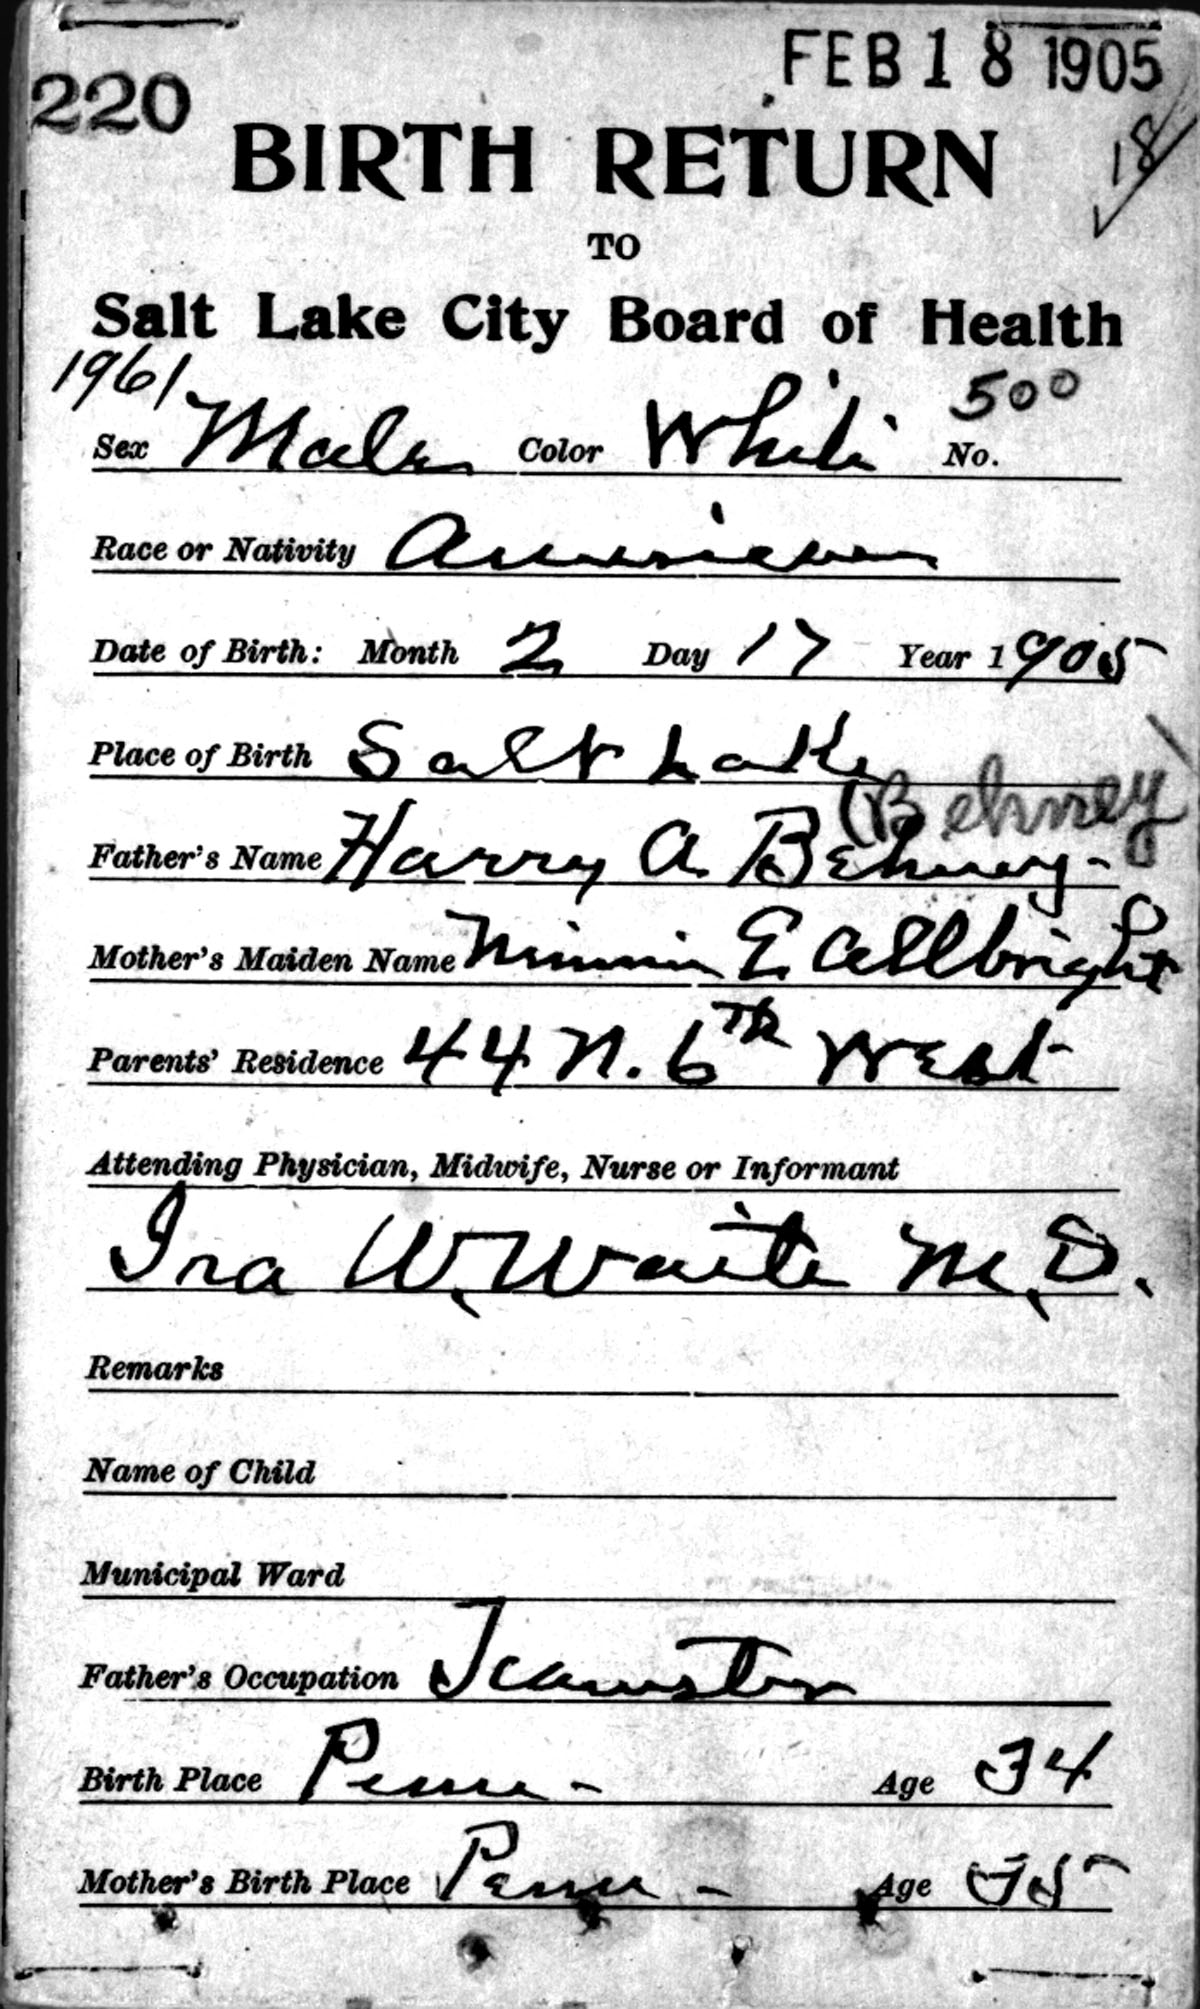 FEB 18 1905
220
18
BIRTH RETURN
TO
Salt Lake City Board of Health
1961
500
Sex Male Color White No.
Race or Nativity American
Date of Birth: Month 2 Day 17 Year 1905
Place of Birth Salt Lake
(Behney)
Father's Name Harry A. Behney -
Mother's Maiden Name Minnie E. Allbright
Parents' Residence 44 N. 6th West
Attending Physician, Midwife, Nurse or Informant
Ira W. Waite M.D.
Remarks
Name of Child
Municipal Ward
Father's Occupation Teamster
Birth Place Penn - Age 34
Mother's Birth Place Penn - Age 35